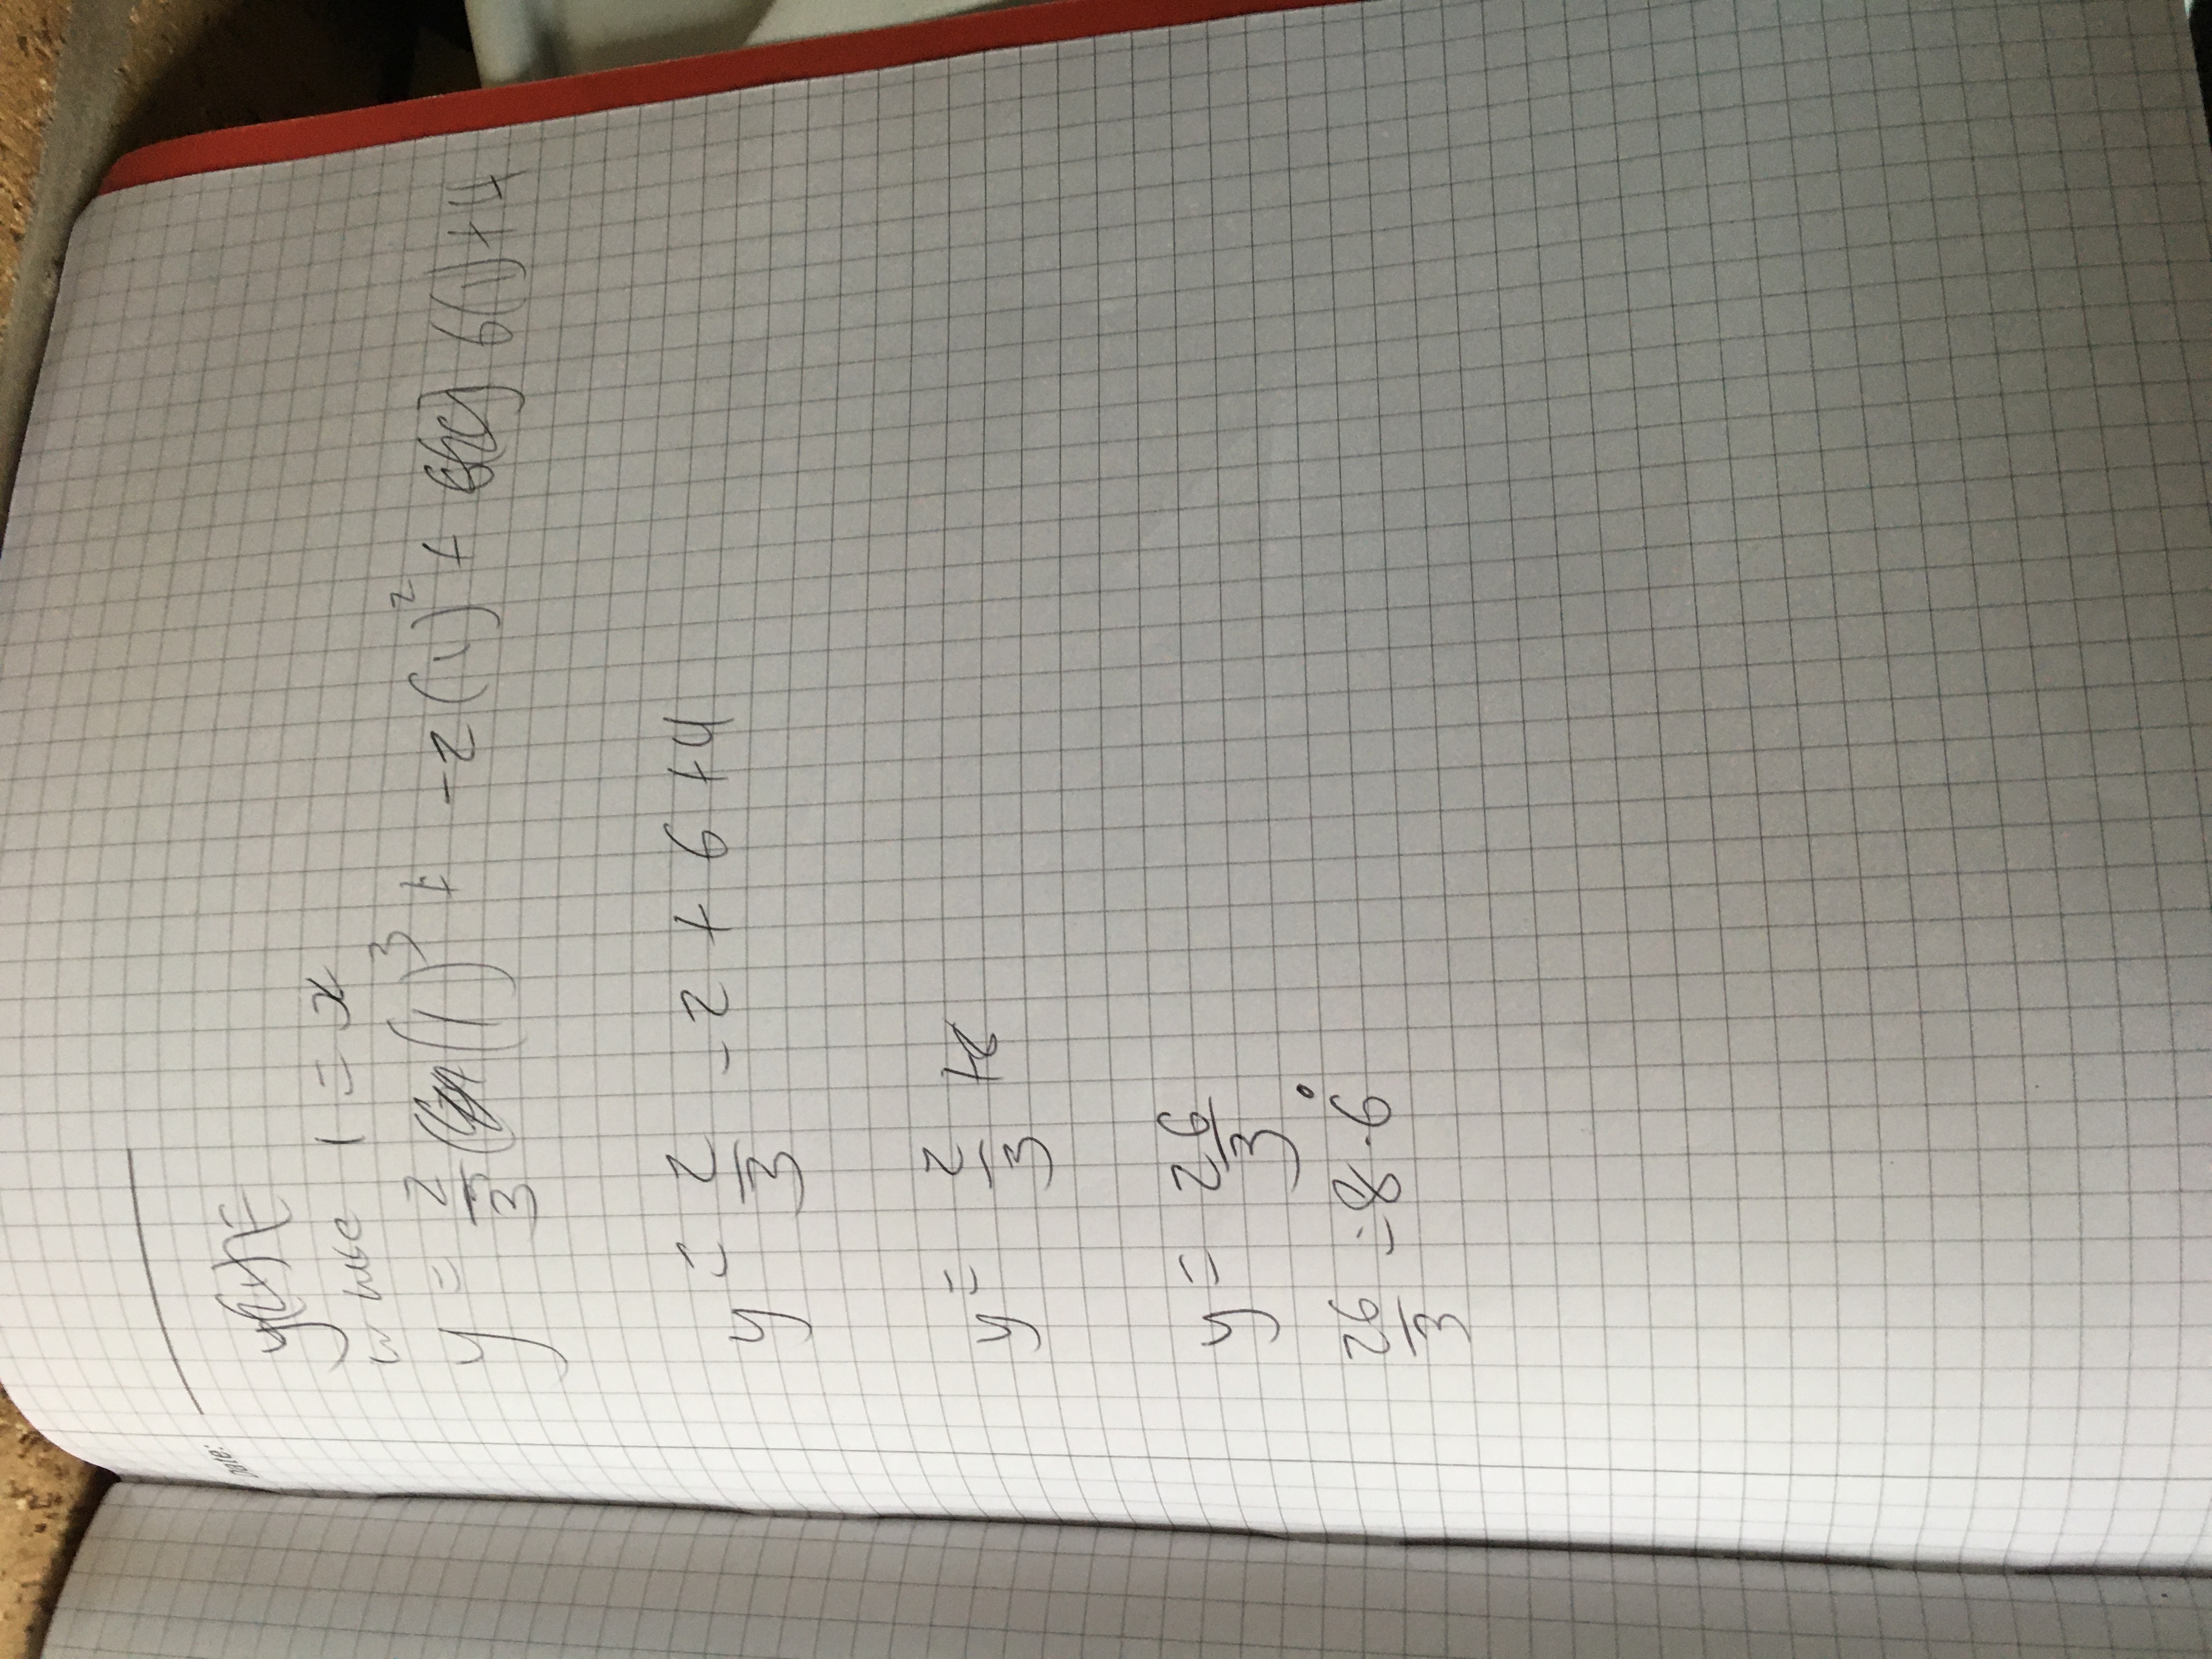 Date:
y(1) =
1 = x
y = 2/3 (1)³ + -2(1)² + 6(1) + 4
y = 2/3 - 2 + 6 + 4
y = 2/3 + 8
y = 26/3
26/3 = 8.6̇